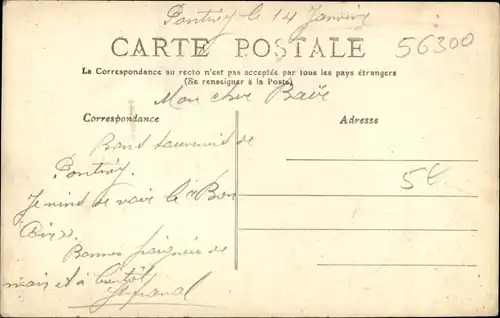 Pontivy le 14 Janvier
CARTE POSTALE
56300
La Correspondance au recto n'est pas acceptée par tous les pays étrangers
(Se renseigner à la Poste)
Mon cher
Correspondance
Adresse
Bons souvenirs de
Pontivy.
Je viens de voir le Bon
Bonnes poignées de
main et à bientôt
5€